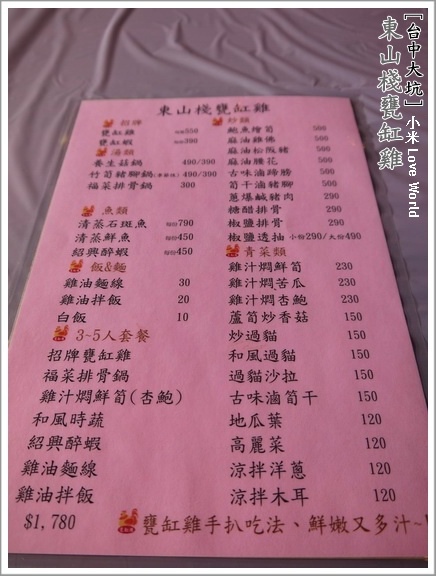 [台中大坑] 小米 Love World
東山棧甕缸雞
東山棧甕缸雞
招牌
甕缸雞 350
甕缸蝦 390
湯類
養生菇鍋 490/390
竹筍豬腳鍋 490/390
福菜排骨鍋 300
魚類
清蒸石斑魚 每份790
清蒸鮮魚 每份450
紹興醉蝦 每份450
飯&麵
雞油麵線 30
雞油拌飯 20
白飯 10
3~5人套餐
招牌甕缸雞
福菜排骨鍋
雞汁燜鮮筍(杏鮑)
和風時蔬
紹興醉蝦
雞油麵線
雞油拌飯
$1,780
炒類
鮑魚燴筍 500
麻油雞佛 500
麻油松阪豬 500
麻油腰花 500
古味滷蹄膀 500
筍干滷豬腳 500
蔥爆鹹豬肉 290
糖醋排骨 290
椒鹽排骨 290
椒鹽透抽 小份290/大份490
青菜類
雞汁燜鮮筍 230
雞汁燜苦瓜 230
雞汁燜杏鮑 230
蘆筍炒香菇 150
炒過貓 150
和風過貓 150
過貓沙拉 150
古味滷筍干 150
地瓜葉 120
高麗菜 120
涼拌洋蔥 120
涼拌木耳 120
甕缸雞手扒吃法、鮮嫩又多汁~!